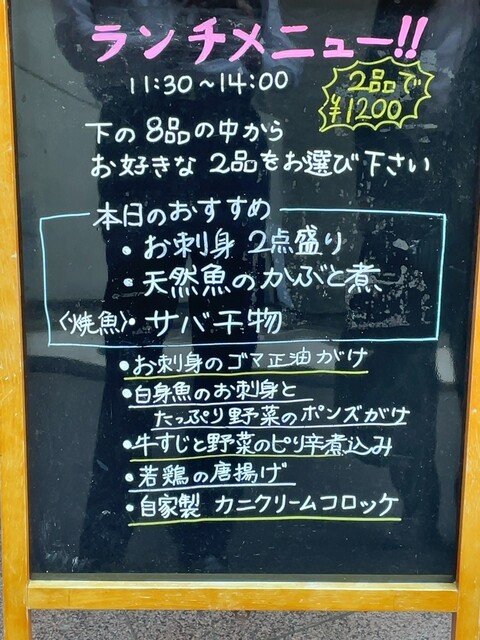 ランチメニュー!!
11:30~14:00
2品で
¥1200
下の8品の中から
お好きな2品をお選び下さい
本日のおすすめ
・お刺身 2点盛り
・天然魚のかぶと煮
〈焼魚〉・サバ干物
・お刺身のゴマ正油がけ
・白身魚のお刺身と
たっぷり野菜のポンズがけ
・牛すじと野菜のピリ辛煮込み
・若鶏の唐揚げ
・自家製 カニクリームコロッケ